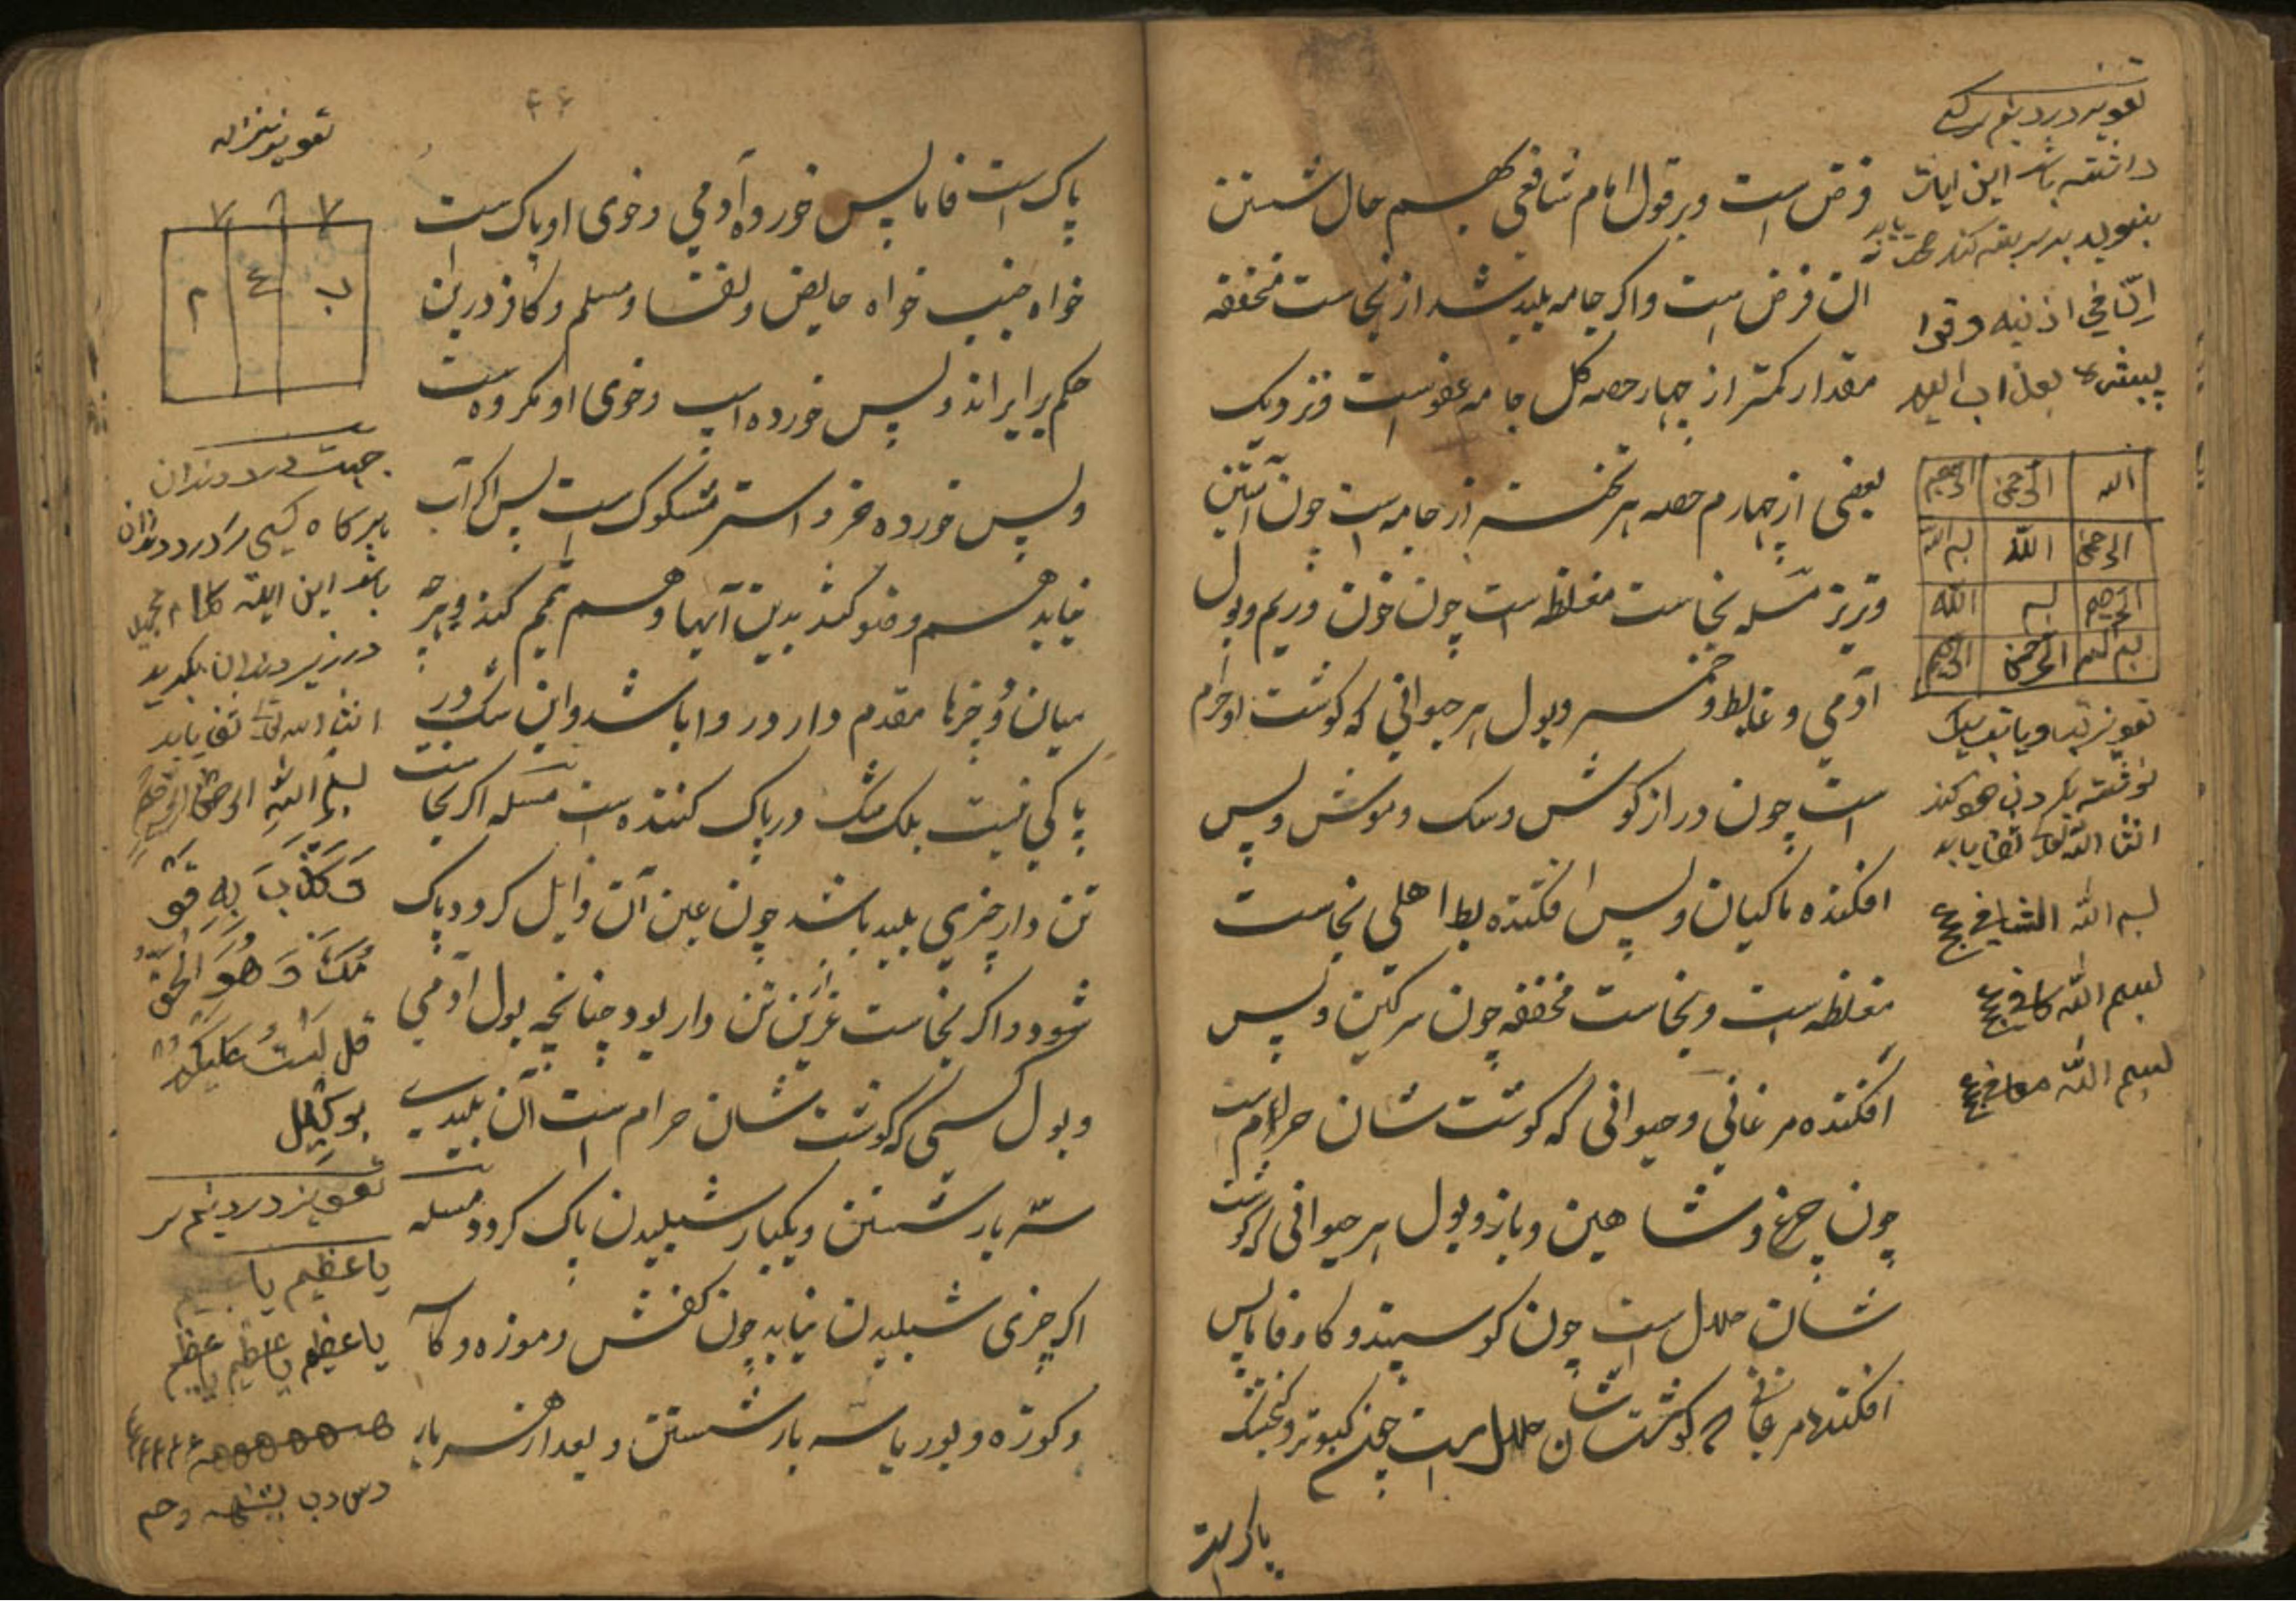 فرض است و بر قول امام شافعی بهمه حال شستن
آن فرض است و اکر جامه پلید شد از نجاست مخففه
مقدار کمتر از چهار حصه کل جامه عفوست و نزدیک
بعضی از چهارم حصه هر تخته از جامه است چون آستین
و تریز مسله نجاست مغلظه است چون خون و ریم و بول
آدمی و غایط و خمر و بول هر حیوانی که کوشت او حرام
است چون درازکوش و سک و موش و پس
افکنده ماکیان و پس افکنده بط اهلی نجاست
مغلظه است و نجاست مخففه چون سرکین و پس
افکنده مرغانی و حیوانی که کوشت شان حرام است
چون چرغ و شاهین و باز و بول هر حیوانی که کوشت
شان حلال است چون کوسپند و کاو فاما پس
افکنده مرغانی که کوشت شان حلال است چون کبوتر و کنجشک
پاک است
داشته باشد این ایات
الله الرحمن الرحیم
الرحمن الله بسم الله
الرحیم بسم الله
بسم الله الرحمن الرحیم
انشا الله تعالی شفا یابد
بسم الله الشافی
بسم الله کافی
بسم الله معافی
۴۴
پاک است فاما پس خورده آدمی و خوی او پاک است
خواه جنب خواه حایض و نفسا و مسلم و کافر درین
حکم برابراند و پس خورده اسپ و خوی او مکروه است
و پس خورده خر و استر مشکوک است پس اکر آب
نیابد هم وضو کند بدین آبها و هم تیمم کند و هر چه
میان دو چیزها مقدم دارد روا باشد و این شک در
پاکی نیست بلک شک در پاک کننده است مسله اکر نجاست
تن دار چیزی پلید باشد چون عین آن زایل کردد پاک
شود و اکر نجاست غیر تن دار بود چنانچه بول آدمی
و بول کسی که کوشت شان حرام است آن پلیدی
سه بار شستن و یکبار شپلیدن پاک کردد مسله
اکر چیزی شپلیدن نیاید چون کفش و موزه و کاسه
و کوزه و بوریا سه بار شستن و بعد از هر بار
تعویذ
ب ع م
جهت درد دندان
باشد این ایته
در زیر دندان بکیرد
انشا الله تعالی شفا یابد
بسم الله الرحمن الرحیم
وَكَذَّبَ بِهِ قَوْ
مُكَ وَهُوَ الْحَقُّ
قل لَسْتُ عَلَيْكُمْ
بِوَكِيلٍ
تعویذ درد نیم سر
یا عظیم یا
یا عظیم یا عظیم یا عظیم